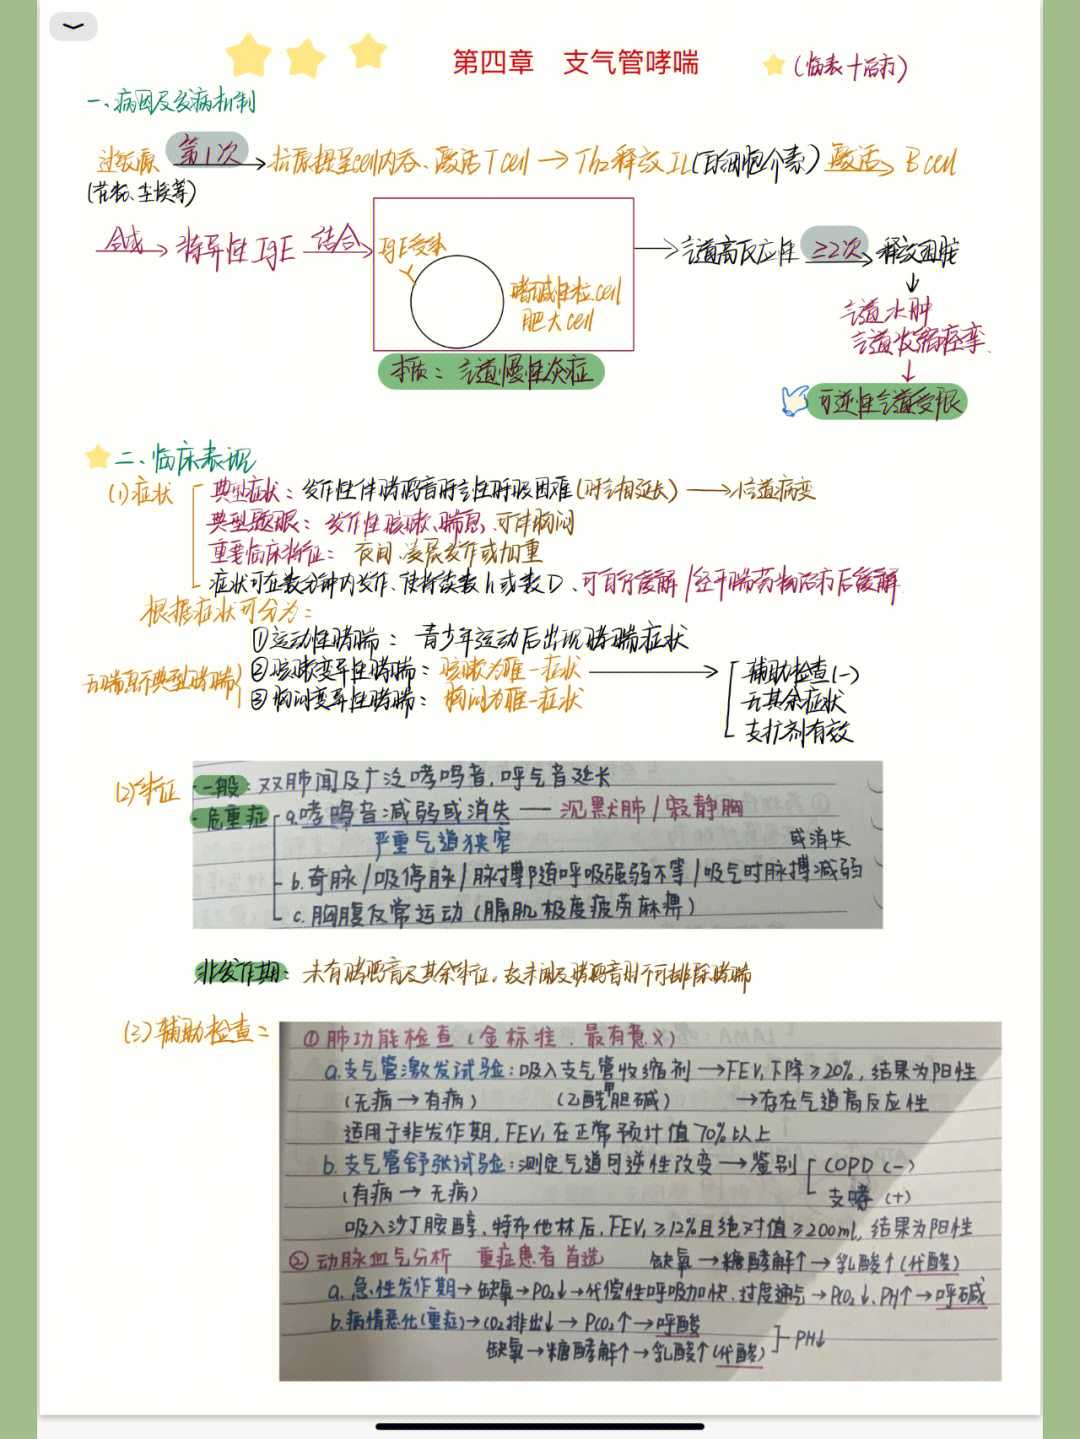 第四章 支气管哮喘 (临表+治疗)
一、病因及发病机制
过敏原 第1次 抗原提呈cell内吞、激活Tcell → Th2释放IL(白细胞介素) 激活 Bcell
(花粉、尘埃等)
合成 → 特异性IgE 结合 IgE受体 → 气道高反应性 ≥2次 释放组胺
嗜碱性粒cell
肥大cell
气道水肿
气道收缩痉挛
本质:气道慢性炎症
可逆性气道受限
二、临床表现
(1)症状 典型症状:发作性伴哮鸣音呼气性呼吸困难(呼气相延长) → 小气道病变
典型题眼:发作性咳嗽、喘息、可伴胸闷
重要临床特征:夜间、凌晨发作或加重
症状可在数分钟内发作、使持续数h或数D、可自行缓解/经平喘药物治疗后缓解
根据症状可分为:
①运动性哮喘:青少年运动后出现哮喘症状
无喘息不典型哮喘 ②咳嗽变异性哮喘:咳嗽为唯一症状 → 辅助检查(-)
③胸闷变异性哮喘:胸闷为唯一症状 无其余症状
支扩剂有效
(2)体征 ·一般:双肺闻及广泛哮鸣音,呼气音延长
·危重症 a.哮鸣音减弱或消失 — 沉默肺/寂静胸
严重气道狭窄 或消失
b.奇脉/吸停脉/脉搏随呼吸强弱不等/吸气时脉搏减弱
c.胸腹反常运动(膈肌极度疲劳麻痹)
非发作期:未有哮鸣音及其余体征,故未闻及哮鸣音时不可排除哮喘
(3)辅助检查: ①肺功能检查(金标准、最有意义)
a.支气管激发试验:吸入支气管收缩剂→FEV₁下降≥20%,结果为阳性
(无病→有病) (乙酰甲胆碱) →存在气道高反应性
适用于非发作期,FEV₁在正常预计值70%以上
b.支气管舒张试验:测定气道可逆性改变→鉴别 COPD (-)
(有病→无病) 支哮 (+)
吸入沙丁胺醇、特布他林后,FEV₁≥12%且绝对值≥200ml,结果为阳性
②动脉血气分析 重症患者首选 缺氧→糖酵解↑→乳酸↑(代酸)
a.急性发作期→缺氧→PO₂↓→代偿性呼吸加快,过度通气→PCO₂↓、PH↑→呼碱
b.病情恶化(重症)→CO₂排出↓→PCO₂↑→呼酸
缺氧→糖酵解↑→乳酸↑(代酸) PH↓